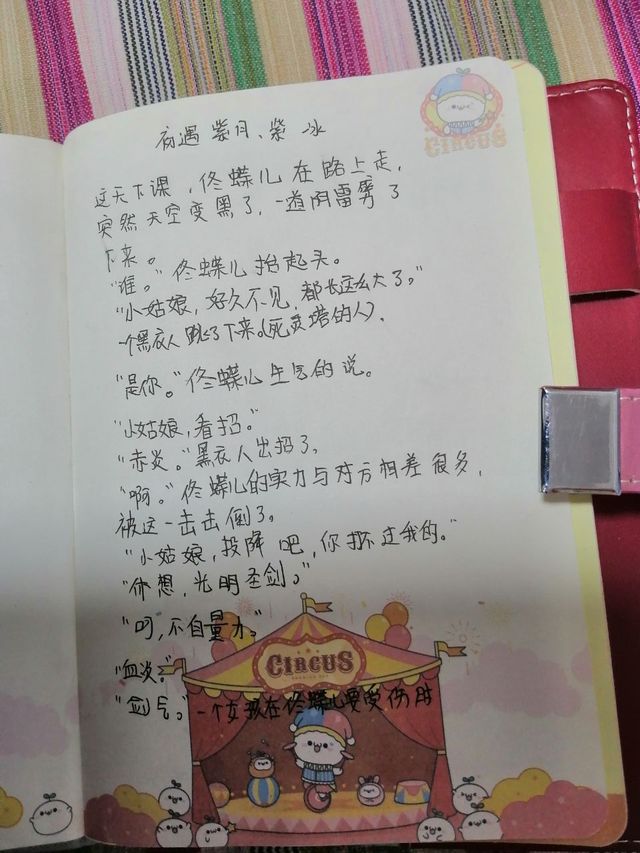 CIRCUS
夜遇紫月、紫冰
这天下课，佟蝶儿在路上走，
突然天空变黑了，一道阴雷劈了
下来。
"谁。"佟蝶儿抬起头。
"小姑娘，好久不见，都长这么大了。"
一个黑衣人跳了下来(死灵塔的人)。
"是你。"佟蝶儿生气的说。
"小姑娘，看招。"
"赤炎。"黑衣人出招了。
"啊。"佟蝶儿的实力与对方相差很多，
被这一击击倒了。
"小姑娘，投降吧，你打不过我的。"
"休想，光明圣剑。"
"呵，不自量力。"
CIRCUS
"血炎。"
"剑气。"一个女孩在佟蝶儿要受伤时